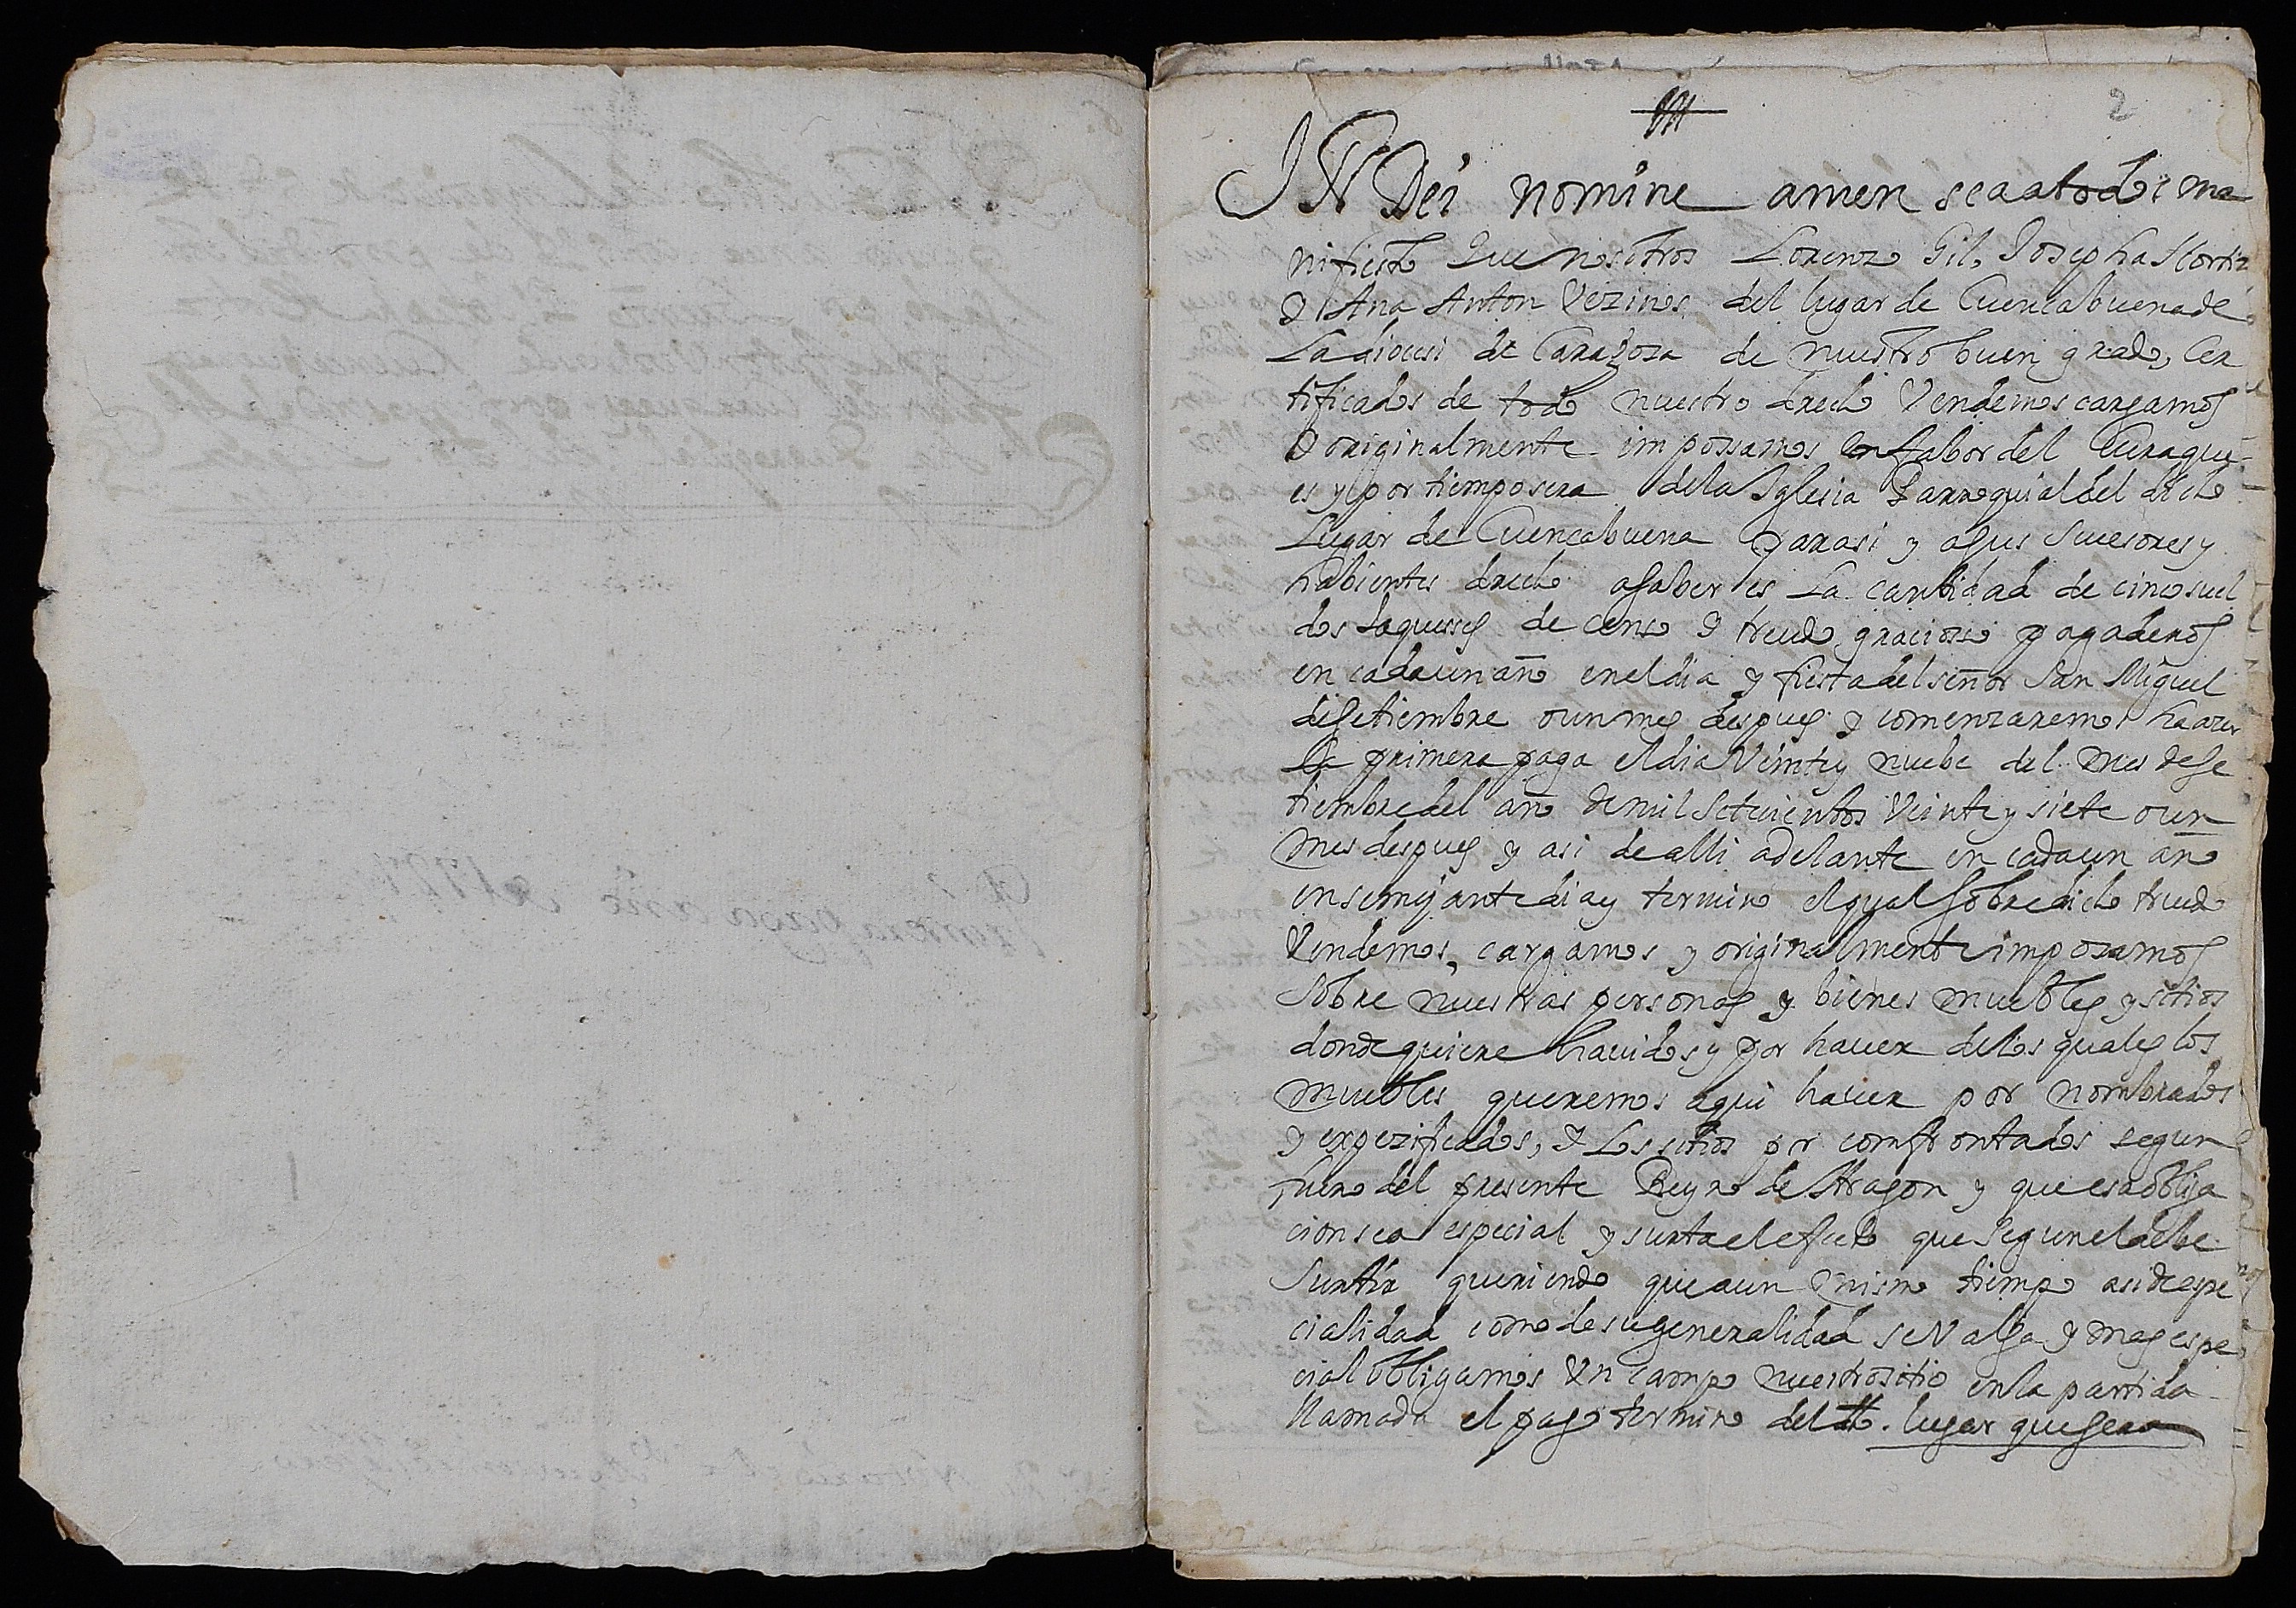 2
IN Dei nomine amen sea a todos ma
nifiesto Que nosotros Lorenzo Gil, Josepha Hortiz
y Ana Anton Vezinos del lugar de Cuencabuena de
La diocesi de Caragoza de nuestro buen grado, Cer
tificados de todo nuestro drecho Vendemos cargamos
y originalmente impossamos en fabor del Cura que
es y por tiempo sera de la Iglesia Parroquial del dicho
Lugar de Cuencabuena para si y a sus Sucesores y
habientes drecho a saber es La cantidad de cinco suel
dos Jaquesses de censo y treudo gracioso pagaderos
en cada un año en el dia y fiesta del señor San Miguel
de Setiembre o un mes despues y comenzaremos ha azer
La primera paga el dia Veinte y nuebe del mes de Se
tiembre del año de mil Setecientos Veinte y siete o un
mes despues y asi de alli adelante en cada un año
en semejante dia y termino el qual sobre dicho treudo
Vendemos, cargamos y originalmente imposamos
Sobre nuestras personas y bienes muebles y sitios
donde quiere hauidos y por hauer de los quales los
muebles queremos aqui hauer por nombrados
y expezificados, y Los sitios por comfrontados segun
fuero del presente Reyno de Aragon y que esa obliga
cion sea especial y surta el efecto que Segun el debe
Surtir queriendo que a un mismo tiempo asi de espe
cialidad como de su generalidad se Valga y mas espe
cial obligamos Un campo nuestro sitio en la partida
llamada el pago termino del dho. lugar que sera